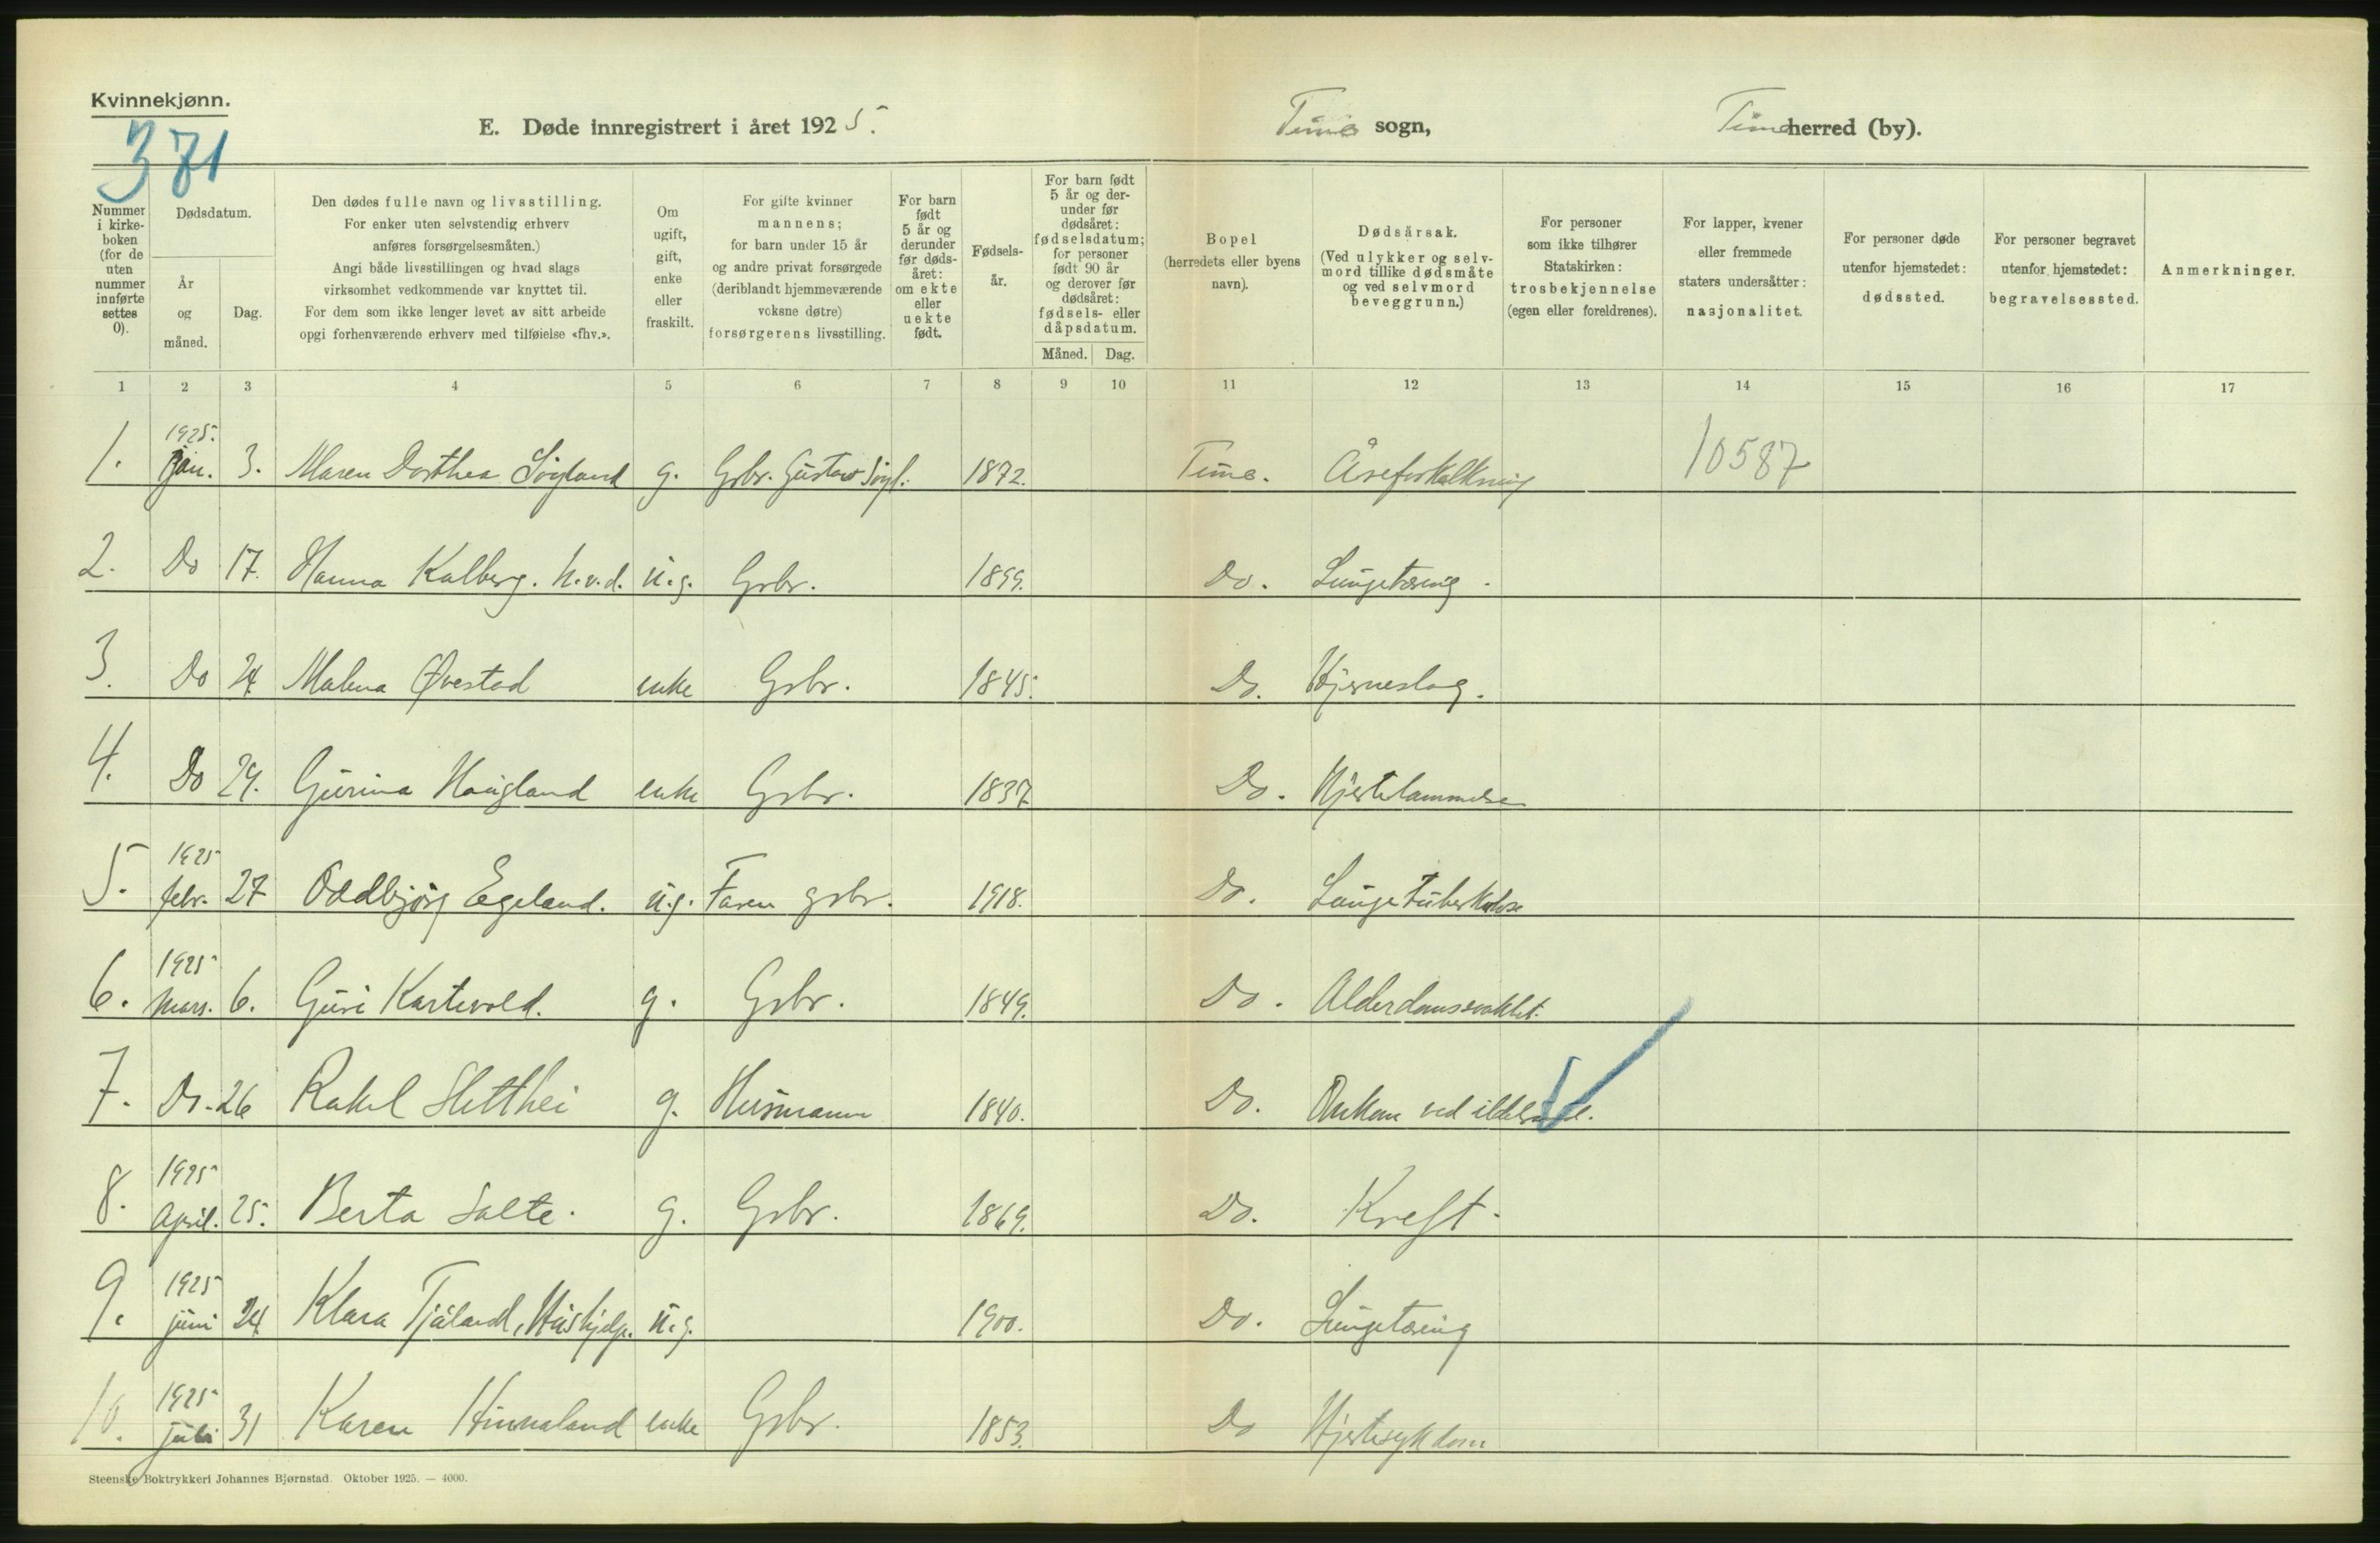 Kvinnekjønn.
371
E. Døde innregistrert i året 1925.
Time sogn,
Time herred (by).
Nummer i kirke-boken (for de uten nummer innførte settes 0).
Dødsdatum.
År og måned.
Dag.
Den dødes fulle navn og livsstilling.
For enker uten selvstendig erhverv
anføres forsørgelsesmåten.)
Angi både livsstillingen og hvad slags
virksomhet vedkommende var knyttet til.
For dem som ikke lenger levet av sitt arbeide
opgi forhenværende erhverv med tilføielse «fhv.».
Om ugift, gift, enke eller fraskilt.
For gifte kvinner
mannens;
for barn under 15 år
og andre privat forsørgede
(deriblandt hjemmeværende
voksne døtre)
forsørgerens livsstilling.
For barn født 5 år og derunder før døds-året: om ekte eller uekte født.
Fødsels-år.
For barn født 5 år og der-under før dødsåret: fødselsdatum; for personer født 90 år og derover før dødsåret: fødsels- eller dåpsdatum.
Måned.
Dag.
Bopel
(herredets eller byens
navn).
Dødsårsak.
(Ved ulykker og selv-
mord tillike dødsmåte
og ved selvmord
beveggrunn.)
For personer
som ikke tilhører
Statskirken:
trosbekjennelse
(egen eller foreldrenes).
For lapper, kvener
eller fremmede
staters undersåtter:
nasjonalitet.
For personer døde
utenfor hjemstedet:
dødssted.
For personer begravet
utenfor hjemstedet:
begravelsessted.
Anmerkninger.
1 2 3 4 5 6 7 8 9 10 11 12 13 14 15 16 17
1. 1925. Jan. 3. Maren Dorthea Svigland g. Grbr. Gustav Svigl. 1872. Time. Åreforkalkning 10587
2. Do 17. Hanna Kalberg. h.v.d. u.g. Grbr. 1899. Do. Lungetæring.
3. Do 24 Malena Øvestad enke Grbr. 1845. Do. Hjerneslag.
4. Do 29. Gurina Haugland enke Grbr. 1837 Do. Hjertelammelse
5. 1925 febr. 27 Oddbjörg Egeland. u.g. Faren grbr. 1918. Do. Lungetuberkulose
6. 1925 Mars. 6. Guri Kartevold. g. Grbr. 1849. Do. Alderdomssvakhet.
7. Do. 26 Rakel Sletthei g. Husmann 1840. Do. Omkom ved ildebrand.
8. 1925 April. 25. Berta Salte. g. Grbr. 1869. Do. Kreft.
9. 1925 juni 24 Klara Tjåland, Hushjelp. u.g. 1900. Do. Lungetæring
10. 1925 juli 31 Karen Hinnaland enke Grbr. 1853. Do Hjertesykdom
Steenske Boktrykkeri Johannes Bjørnstad. Oktober 1925. — 4000.